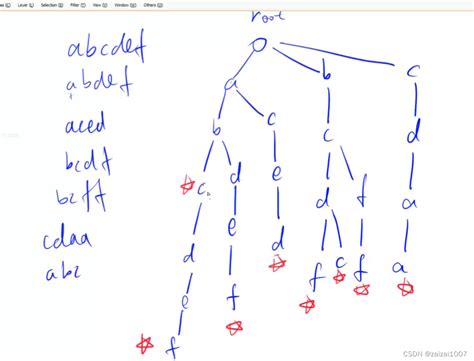 Layer (L) Selection (S) Filter (T) View (V) Window (W) Others (O)
root
abcdef
abdef
aced
bcdf
bcff
cdaa
abc
a b c
b c c d
c d e d f a
d e d f c f a
e f
f
CSDN @zaizai1007